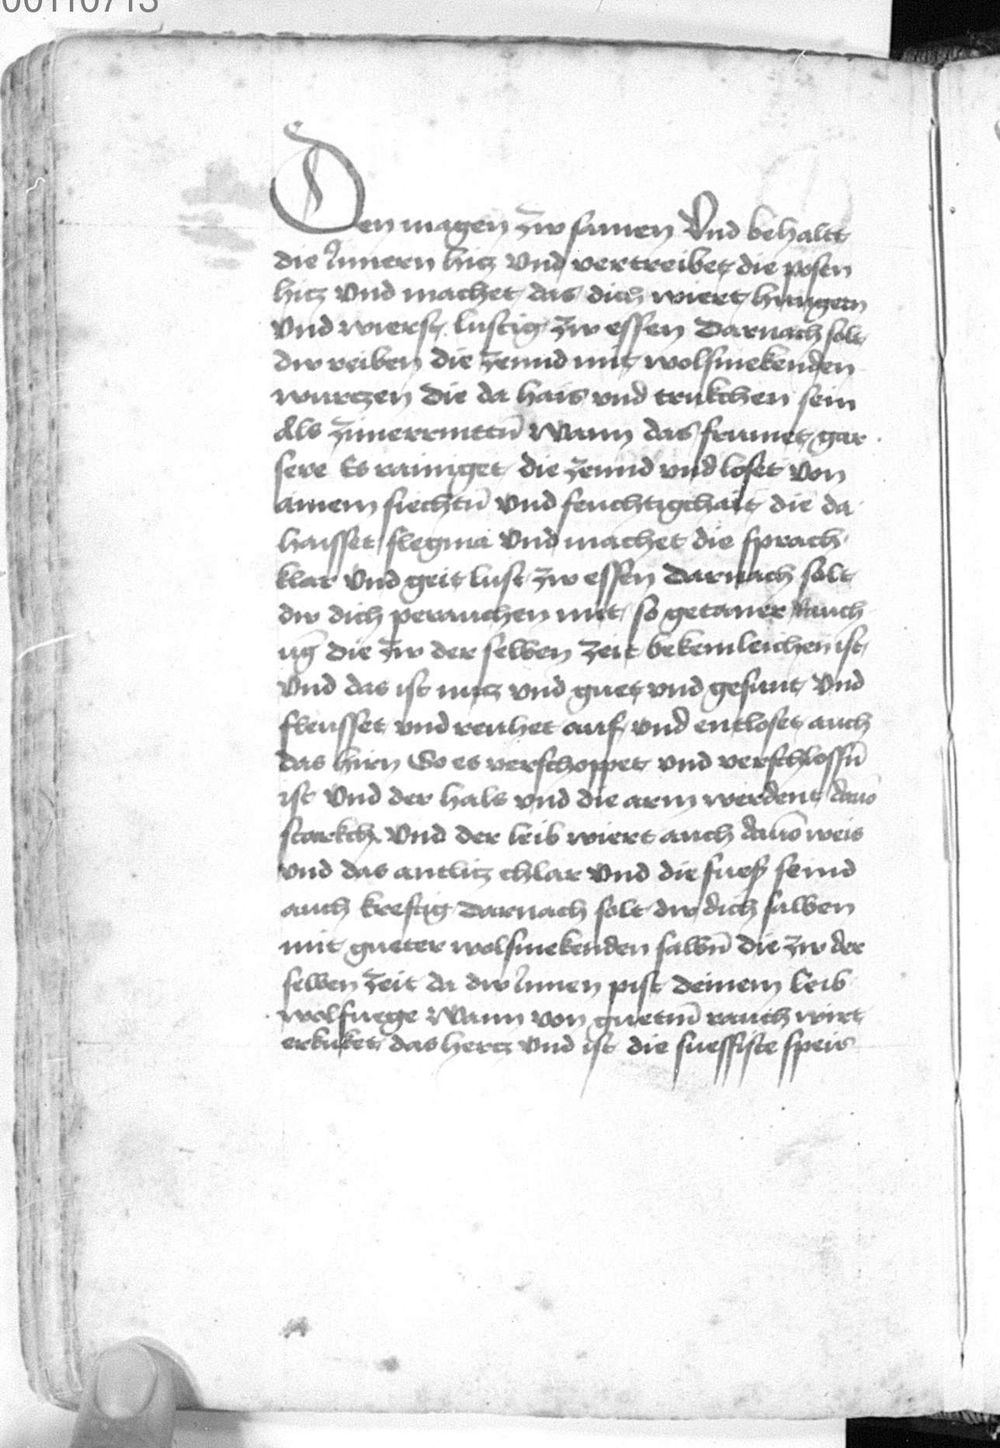 00110713
Den magen zw samen Vnd behaltt
die Innern hicz Vnd vertreibet die posen
hicz Vnd machet das dich wiert hungern
Vnd wierst lustig zw essen Darnach solt
dw reiben die zennd mit wolsmekenden
wurczen die da hais vnd trukchen sein
Als zimerrinttn̄ Wann das frumet gar
sere Es rainiget die zennd vnd loset von
ainem siechtū Vnd feuchtigchait die da
haisset flegma Vnd machet die sprach
klar Vnd geit lust zw essen Darnach solt
dw dich perauchen mit so getaner Rauch
ūg die zw der selben zeit bekemleichen ist
Vnd das ist nucz vnd guet vnd gesunt Vnd
fleusset vnd reuhet auf vnd entloset auch
das hirn So es verschoppet vnd verschlossn̄
ist Vnd der hals vnd die arm werdent dauō
starkch Vnd der leib wiert auch dauō weis
Vnd das antlicz chlar Vnd die fuess seind
auch kreftig Darnach solt dw dich salben
mit gueter wolsmekenden salbn̄ die zw der
selben zeit da dw Innen pist deinem leib
wolfuege Wann von guetm̄ rauch wirt
erkuket das hercz Vnd ist die suessiste speis